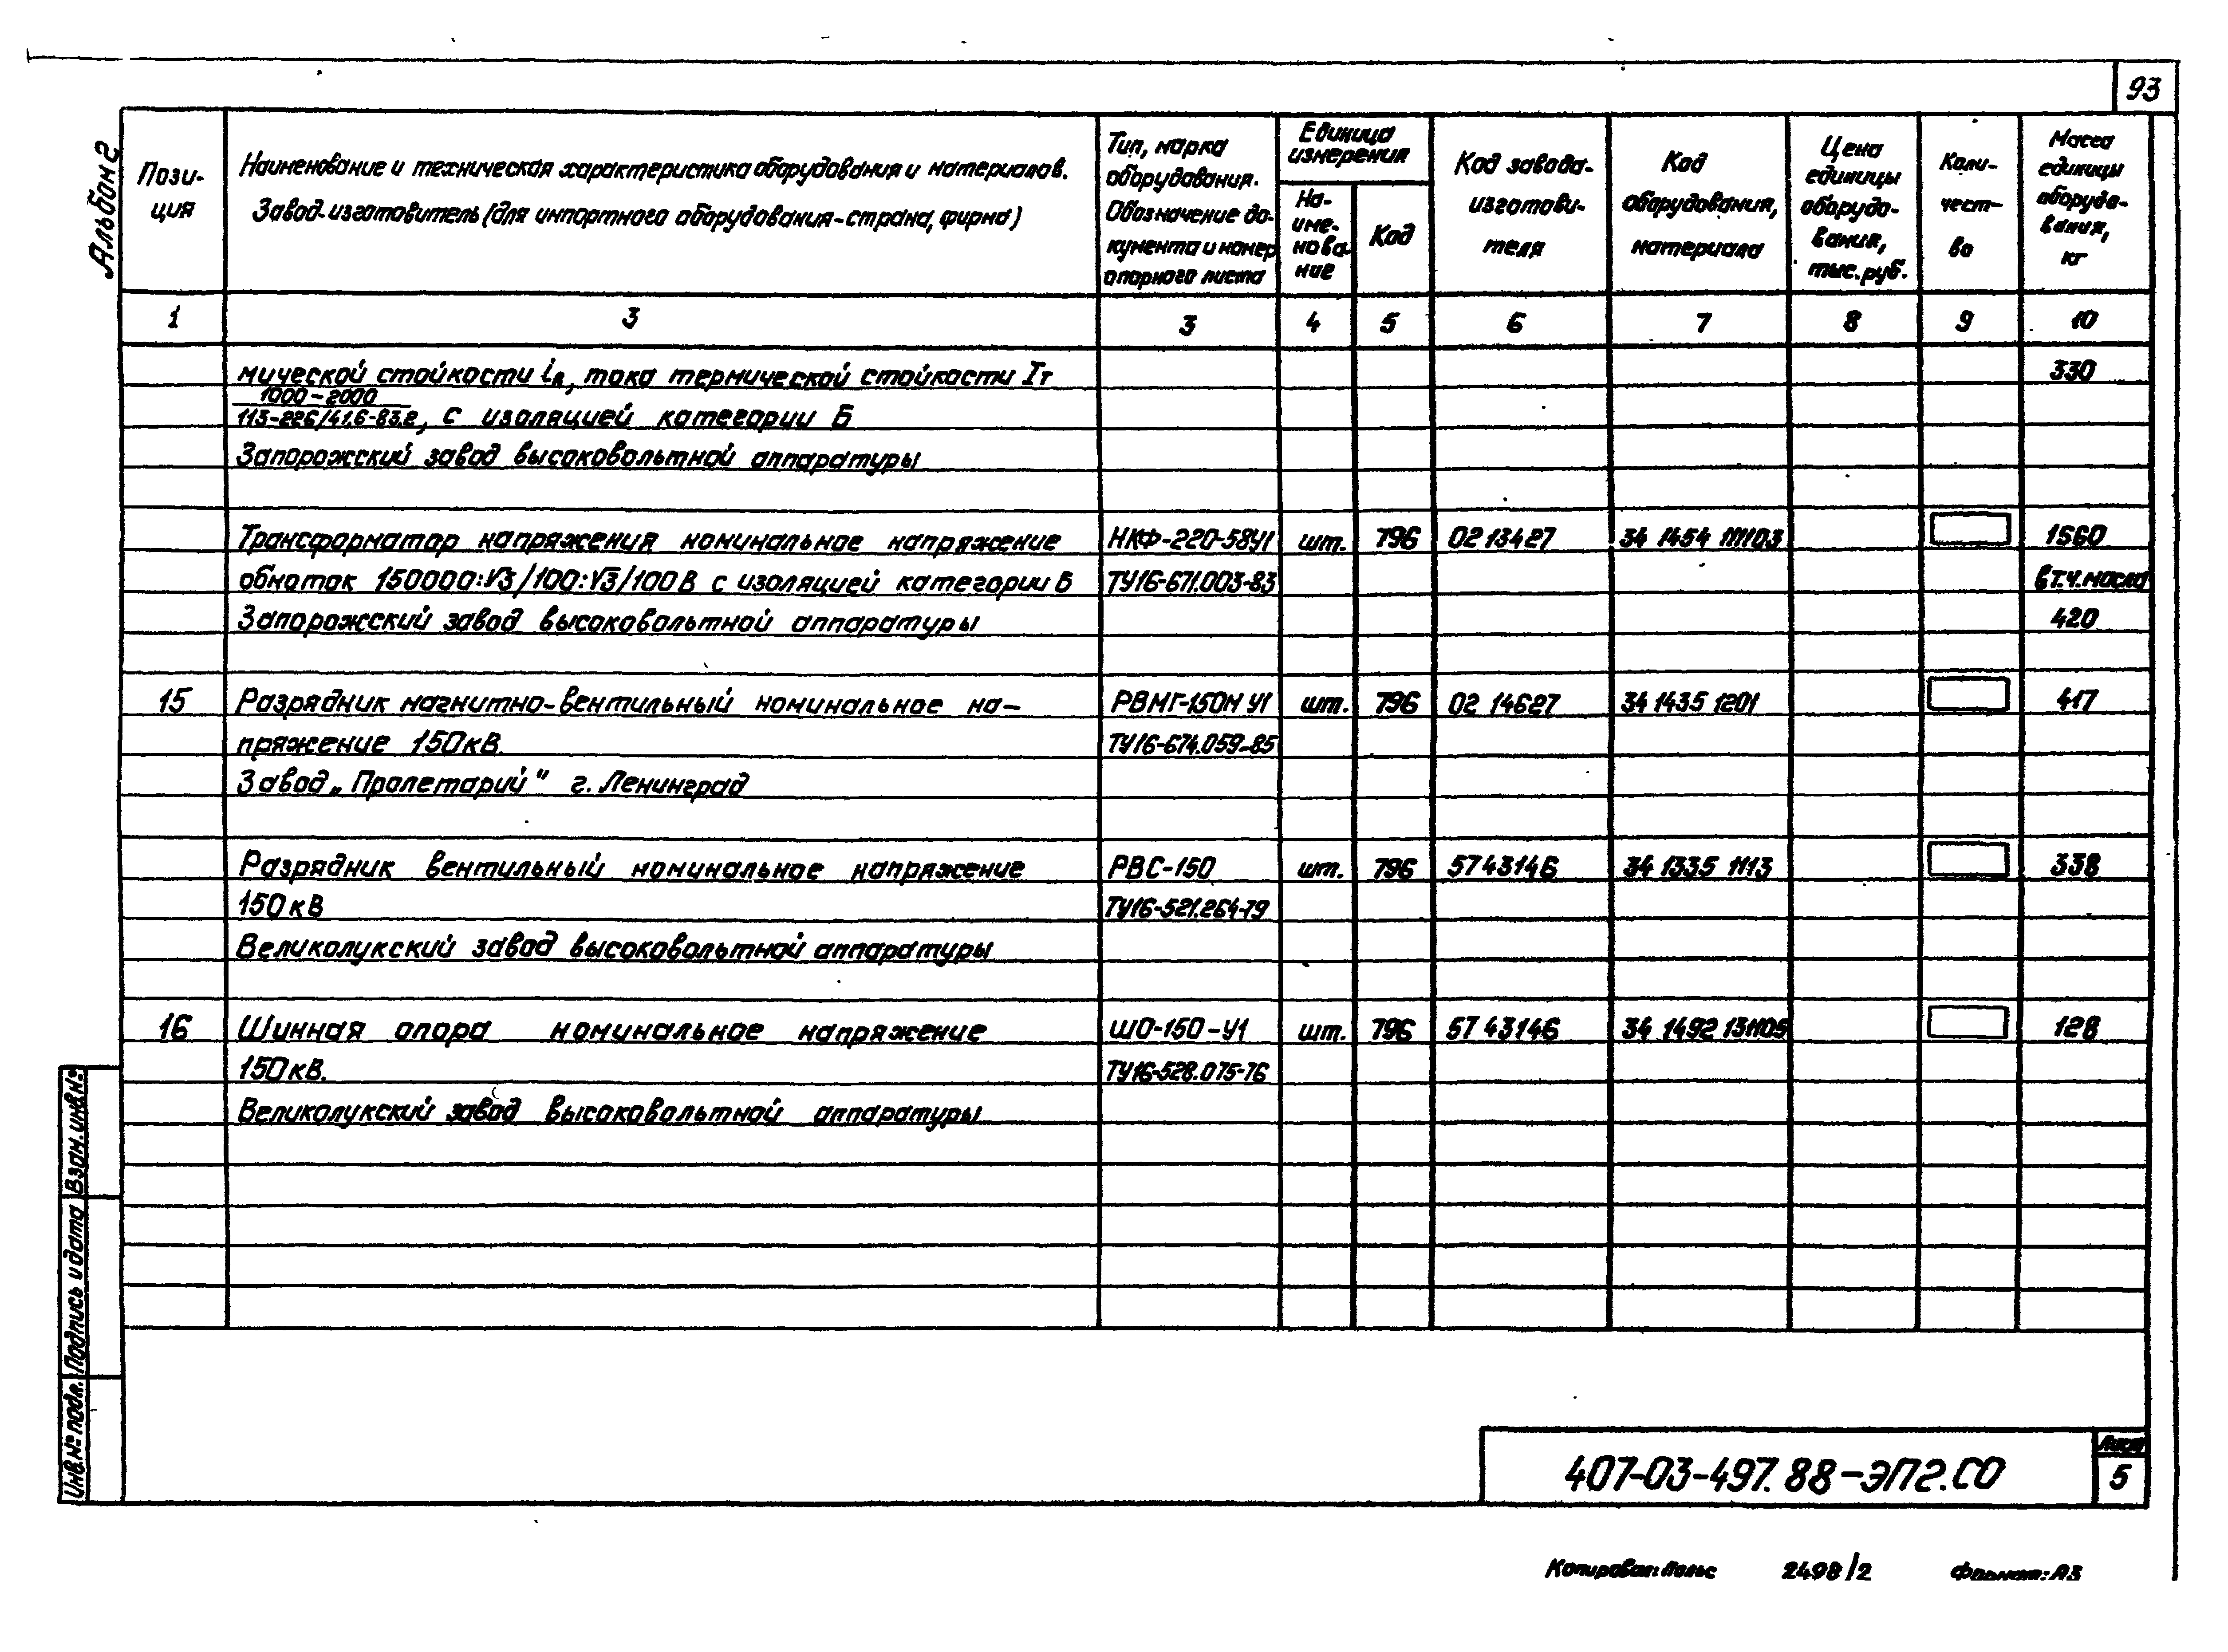 93
Альбом 2
Пози-
ция
Наименование и техническая характеристика оборудования и материалов.
Завод-изготовитель (для импортного оборудования-страна, фирма)
Тип, марка
оборудования.
Обозначение до-
кумента и номер
опросного листа
Единица
измерения
На-
име-
нова-
ние
Код
Код завода-
изготови-
теля
Код
оборудования,
материала
Цена
единицы
оборудо-
вания,
тыс. руб.
Коли-
чест-
во
Масса
единицы
оборудо-
вания,
кг
1 3 3 4 5 6 7 8 9 10
мической стойкости iд, тока термической стойкости Iт 330
1000-2000
113-226/41,6-83,2, с изоляцией категории Б
Запорожский завод высоковольтной аппаратуры
Трансформатор напряжения номинальное напряжение НКФ-220-58У1 шт. 796 02 13427 34 1454 111103 1560
обмоток 150000:√3/100:√3/100 В с изоляцией категории Б ТУ16-671.003-83 в т.ч. масла
Запорожский завод высоковольтной аппаратуры 420
15 Разрядник магнитно-вентильный номинальное на- РВМГ-150М У1 шт. 796 02 14627 34 1435 1201 417
пряжение 150кВ. ТУ16-674.059-85
Завод „Пролетарий" г. Ленинград
Разрядник вентильный номинальное напряжение РВС-150 шт. 796 5743146 34 1335 1113 338
150кВ ТУ16-521.264-79
Великолукский завод высоковольтной аппаратуры
16 Шинная опора номинальное напряжение ШО-150-У1 шт. 796 57 43146 34 1492 131105 128
150кВ. ТУ16-528.075-76
Великолукский завод высоковольтной аппаратуры
Взам. инв.№
Подпись и дата
Инв.№ подл.
407-03-497.88-ЭП2.СО
Лист
5
Копировал: 2498/2 Формат: А3